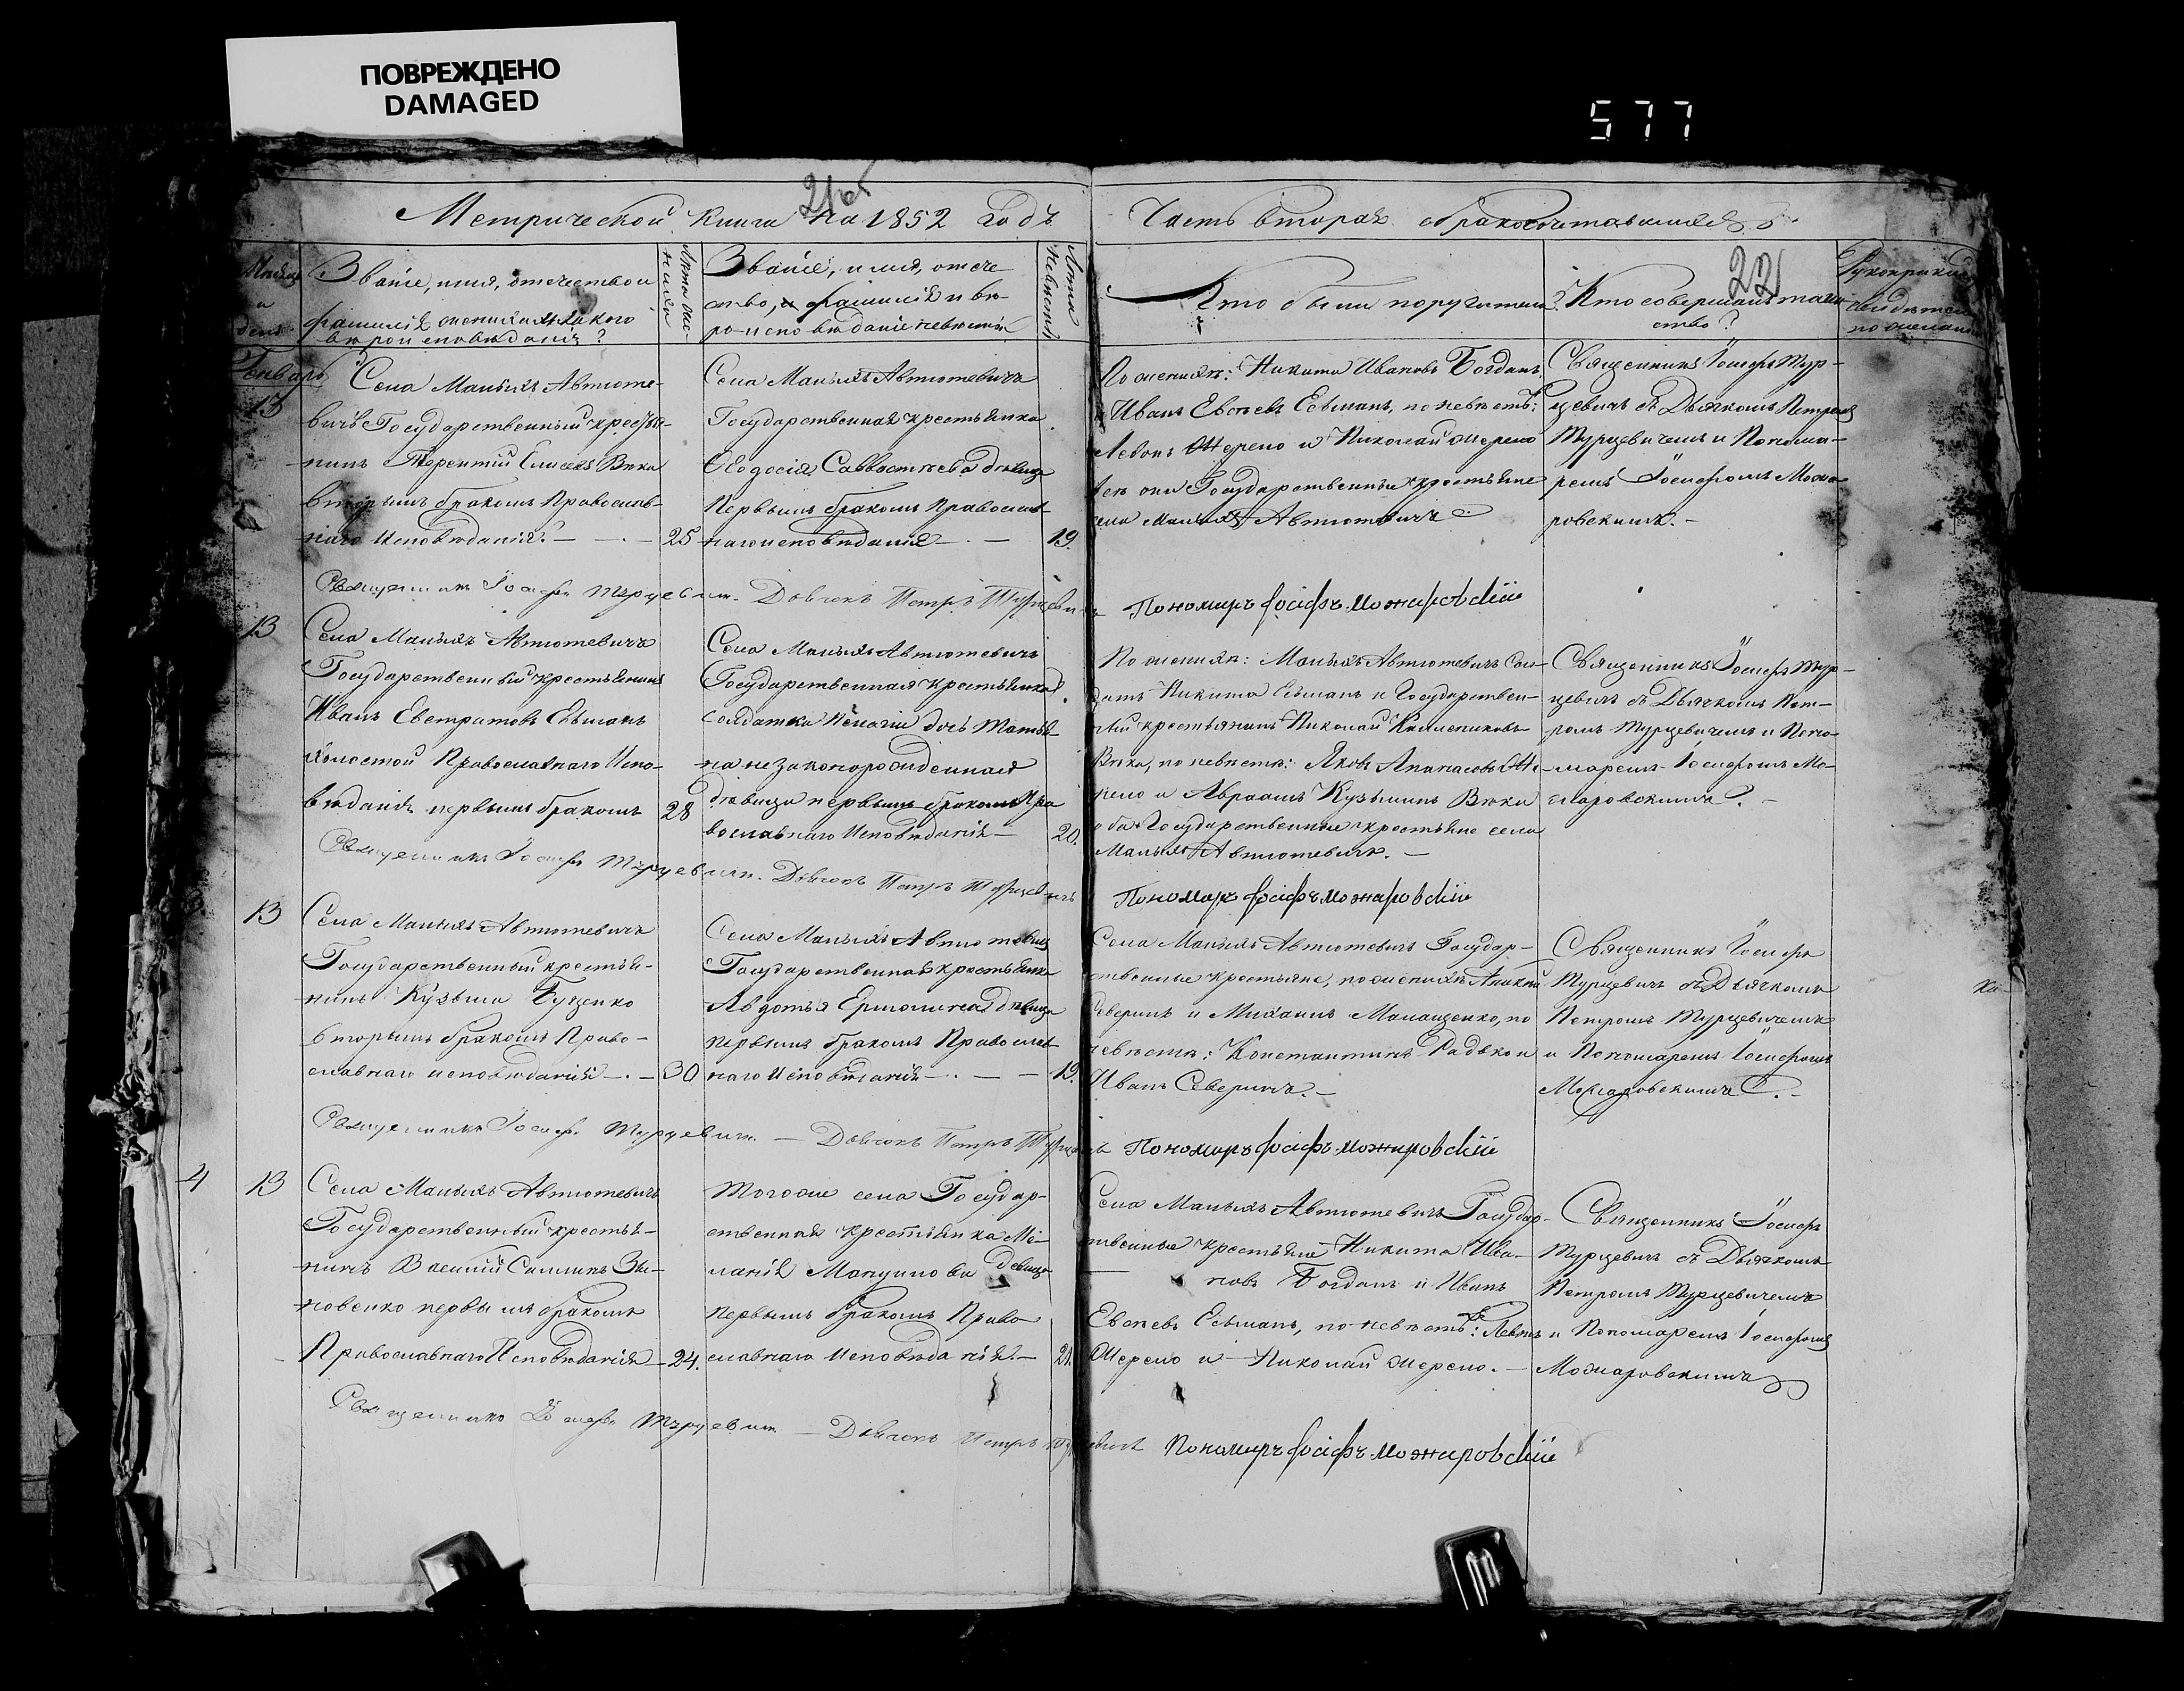 ПОВРЕЖДЕНО
DAMAGED
577
21об
Метрической Книги на 1852 Годъ
Часть вторая о бракосочетавшихся
22
Мѣсяцъ
и
день
Званіе, имя, отечество и
фамилія жениха и какого
вѣроисповѣданія?
Лѣта же-
ниха
Званіе, имя, отече-
ство, и фамилія и вѣ-
роисповѣданіе невѣсты
Лѣта
Невѣсты
Кто были поручители?
Кто совершалъ таин-
ство?
по желанію
Генварь
13
Села Малыхъ Автюте-
вичъ Государственный крестья-
нинъ Терентій Елисеевъ Вѣко
вторымъ бракомъ Православ-
наго Исповѣданія. — 25
Села Малыхъ Автютевичъ
Государственная крестьянка
Ѳеодосія Савостѣева дѣвица
Первымъ бракомъ Православ-
наго исповѣданія — 19.
По женихѣ: Никита Ивановъ Богданъ
и Иванъ Евсѣевъ Есьманъ, по невѣстѣ:
Левонъ Жерело и Николай Жерело
всѣ они Государственные крестьяне
села Малыхъ Автютевичъ
Священникъ Іосифъ Тур-
цевичъ съ Дьячкомъ Петромъ
Турцевичемъ и Понома-
ремъ Іосифомъ Можа-
ровскимъ. —
Священникъ Іосифъ Турцевичъ. Дьячокъ Петръ Турцевичъ Пономаръ Іосифъ Можаровскій
13
Села Малыхъ Автютевичъ
Государственный крестьянинъ
Иванъ Евстратовъ Есьманъ
холостой Православнаго Испо-
вѣданія первымъ бракомъ 28
Села Малыхъ Автютевичъ
Государственная крестьянка
солдатки Пелагіи дочь Татья-
на незаконорожденная
дѣвица первымъ бракомъ Пра
вославнаго Исповѣданія — 20.
По женихѣ: Малыхъ Автютевичъ Сол-
датъ Никита Есьманъ и Государствен-
ный крестьянинъ Николай
Вѣко, по невѣстѣ: Яковъ Апанасовъ Же-
рело и Авраамъ Кузьминъ Вѣко
оба Государственные крестьяне села
Малыхъ Автютевичъ. —
Священникъ Іосифъ Тур-
цевичъ съ Дьячкомъ Пет-
ромъ Турцевичемъ и Поно-
маремъ Іосифомъ Мо-
жаровскимъ. —
Священникъ Іосифъ Турцевичъ. Дьячокъ Петръ Турцевичъ Пономаръ Іосифъ Можаровскій
13
Села Малыхъ Автютевичъ
Государственный крестья-
нинъ Кузьма Буценко
вторымъ бракомъ Право-
славнаго исповѣданія — 30
Села Малыхъ Автютевичъ
Государственная крестьянка
Авдотья Ермолиева дѣвица
первымъ бракомъ Православ-
наго Исповѣданія — 19.
Села Малыхъ Автютевичъ Государ-
ственные крестьяне, по женихѣ
Северинъ и Михаилъ Манащенко, по
невѣстѣ: Константинъ Радько и
Иванъ Северинъ. —
Священникъ Іосифъ
Турцевичъ съ Дьячкомъ
Петромъ Турцевичемъ
и Пономаремъ Іосифомъ
Можаровскимъ. —
Священникъ Іосифъ Турцевичъ. — Дьячокъ Петръ Турцевичъ Пономаръ Іосифъ Можаровскій
4 13
Села Малыхъ Автютевичъ
Государственный крестья-
нинъ Василій Симлинъ Зи-
новенко первымъ бракомъ
Православнаго Исповѣданія — 24.
Тогоже села Государ-
ственная крестьянка Ме-
ланія Мануилова дѣвица
первымъ бракомъ Право
славнаго Исповѣданія. — 21.
Села Малыхъ Автютевичъ Государ-
ственные крестьяне Никита Ива-
новъ Богданъ и Иванъ
Евсѣевъ Есьманъ, по невѣстѣ: Левонъ
Жерело и Николай Жерело. —
Священникъ Іосифъ
Турцевичъ съ Дьячкомъ
Петромъ Турцевичемъ
и Пономаремъ Іосифомъ
Можаровскимъ
Священникъ Іосифъ Турцевичъ — Дьячокъ Петръ Турцевичъ Пономаръ Іосифъ Можаровскій